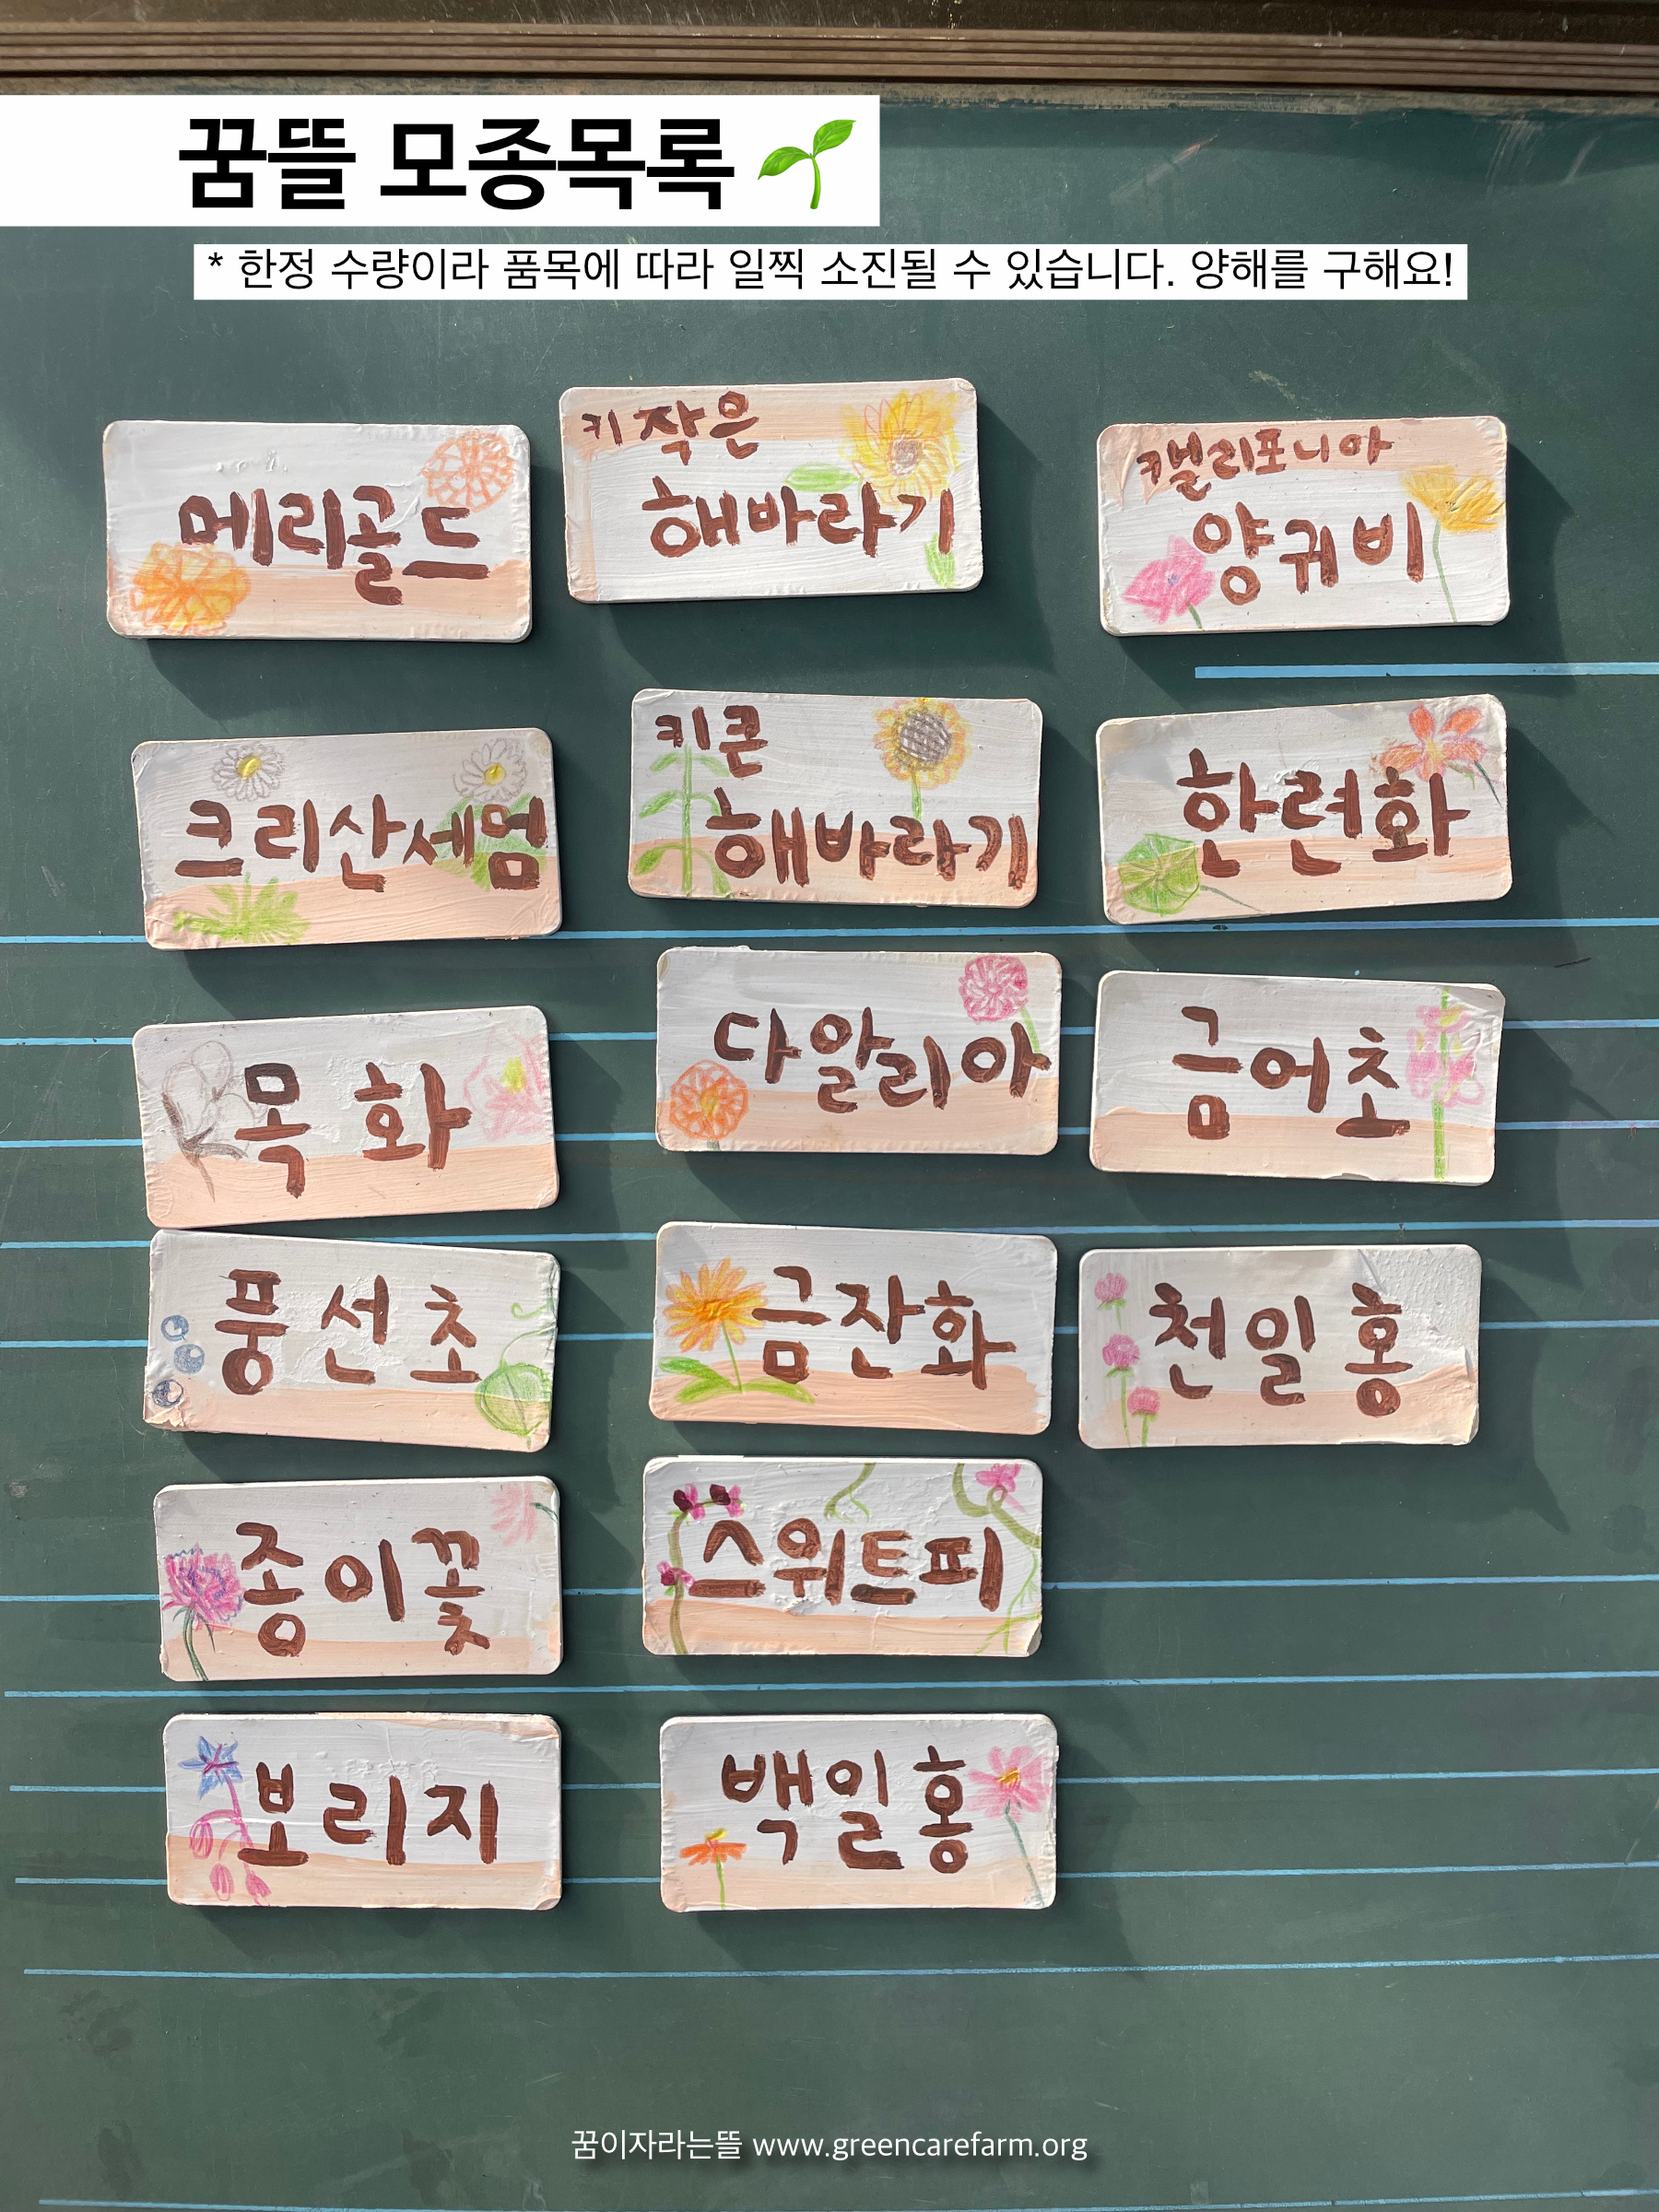 꿈뜰 모종목록
* 한정 수량이라 품목에 따라 일찍 소진될 수 있습니다. 양해를 구해요!
메리골드
키작은
해바라기
캘리포니아
양귀비
크리산세멈
키큰
해바라기
한련화
목화
다알리아
금어초
풍선초
금잔화
천일홍
종이꽃
스위트피
보리지
백일홍
꿈이자라는뜰 www.greencarefarm.org